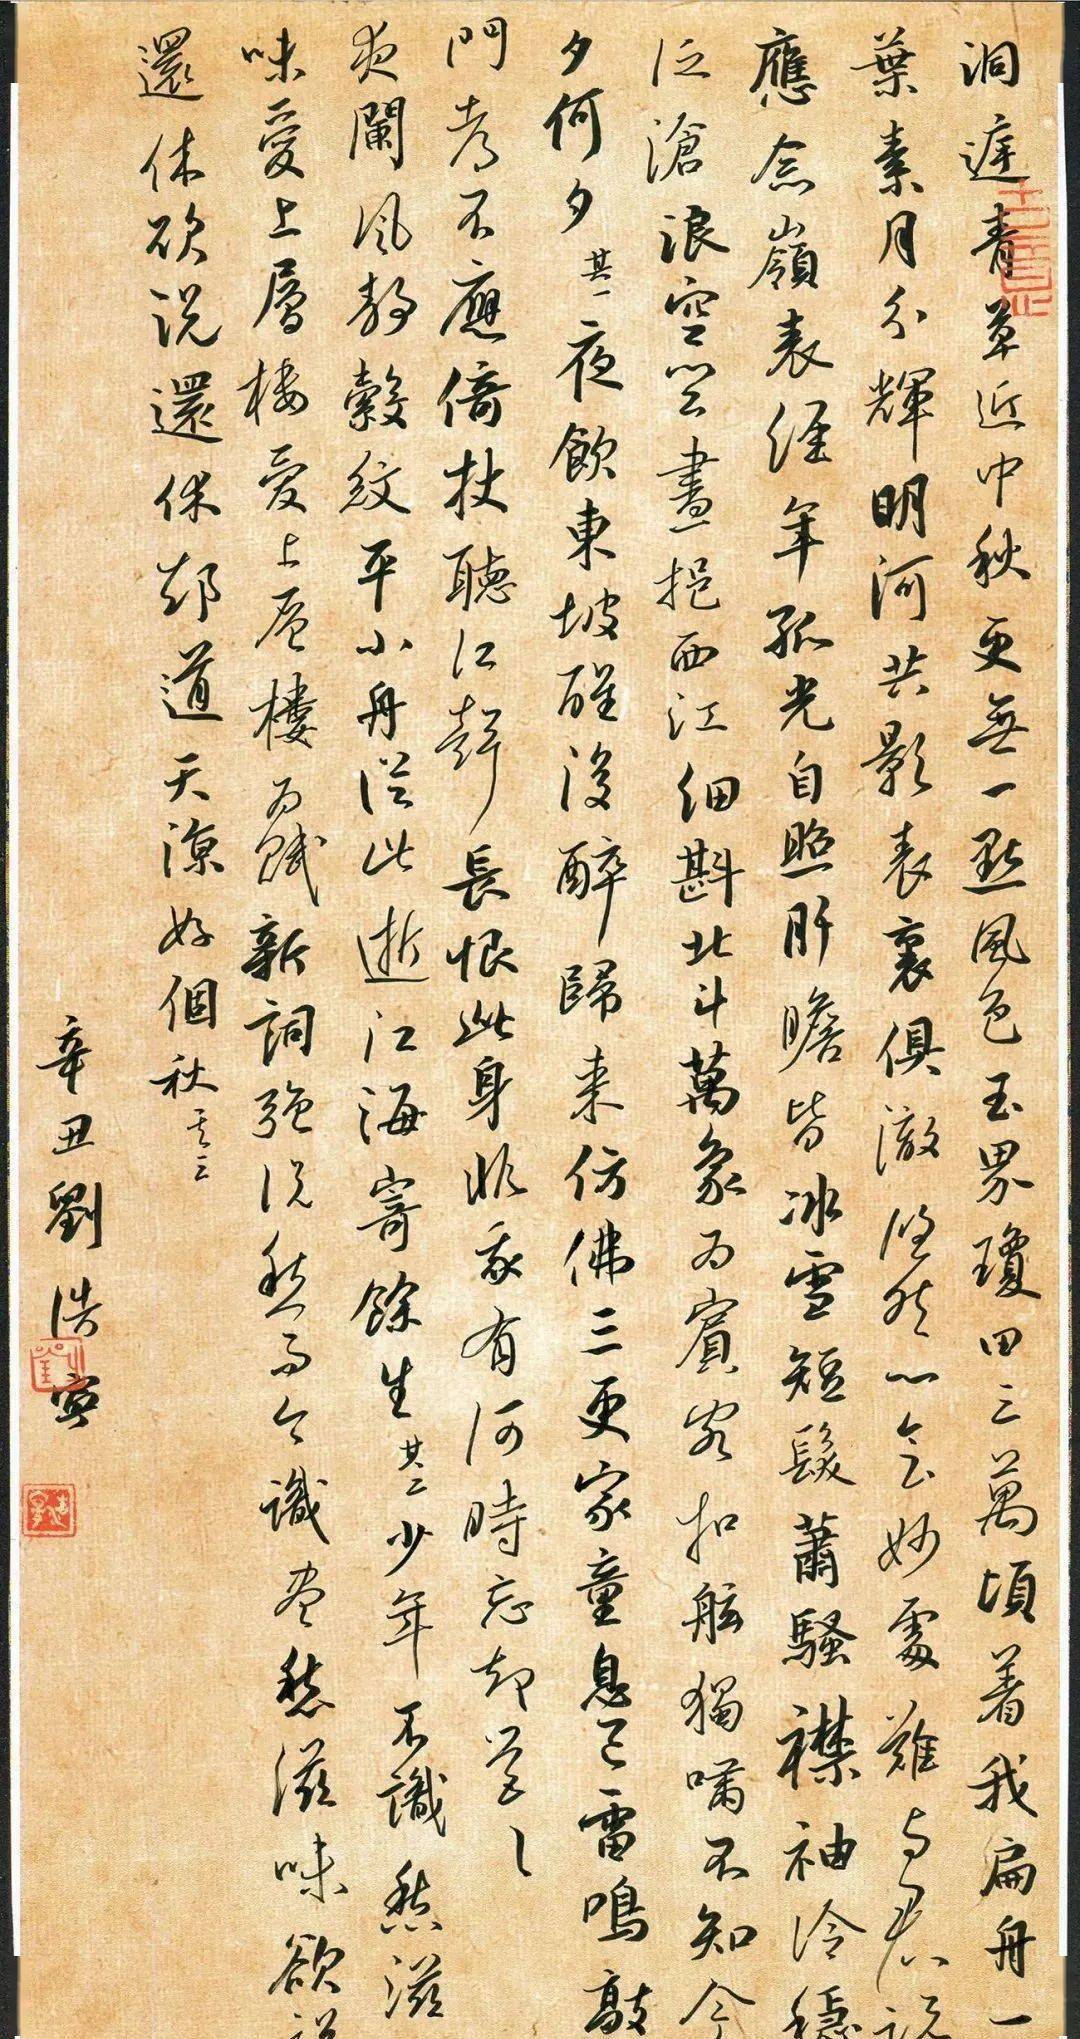 洞庭青草近中秋更無一點風色玉界瓊田三萬頃着我扁舟一
葉素月分輝明河共影表裏俱澈悠然心會妙處難與君說
應念嶺表經年孤光自照肝膽皆冰雪短髮蕭騷襟袖冷穩
泛滄浪空闊盡挹西江細斟北斗萬象為賓客扣舷獨嘯不知今
夕何夕 其一 夜飲東坡醒復醉歸來仿佛三更家童鼻息已雷鳴敲
門都不應倚杖聽江聲長恨此身非我有何時忘却營〻
夜闌風靜縠紋平小舟從此逝江海寄餘生 其二 少年不識愁滋
味愛上層樓愛上層樓為賦新詞強說愁而今識盡愁滋味欲說
還休欲說還休却道天涼好個秋 其三
辛丑劉浩寅